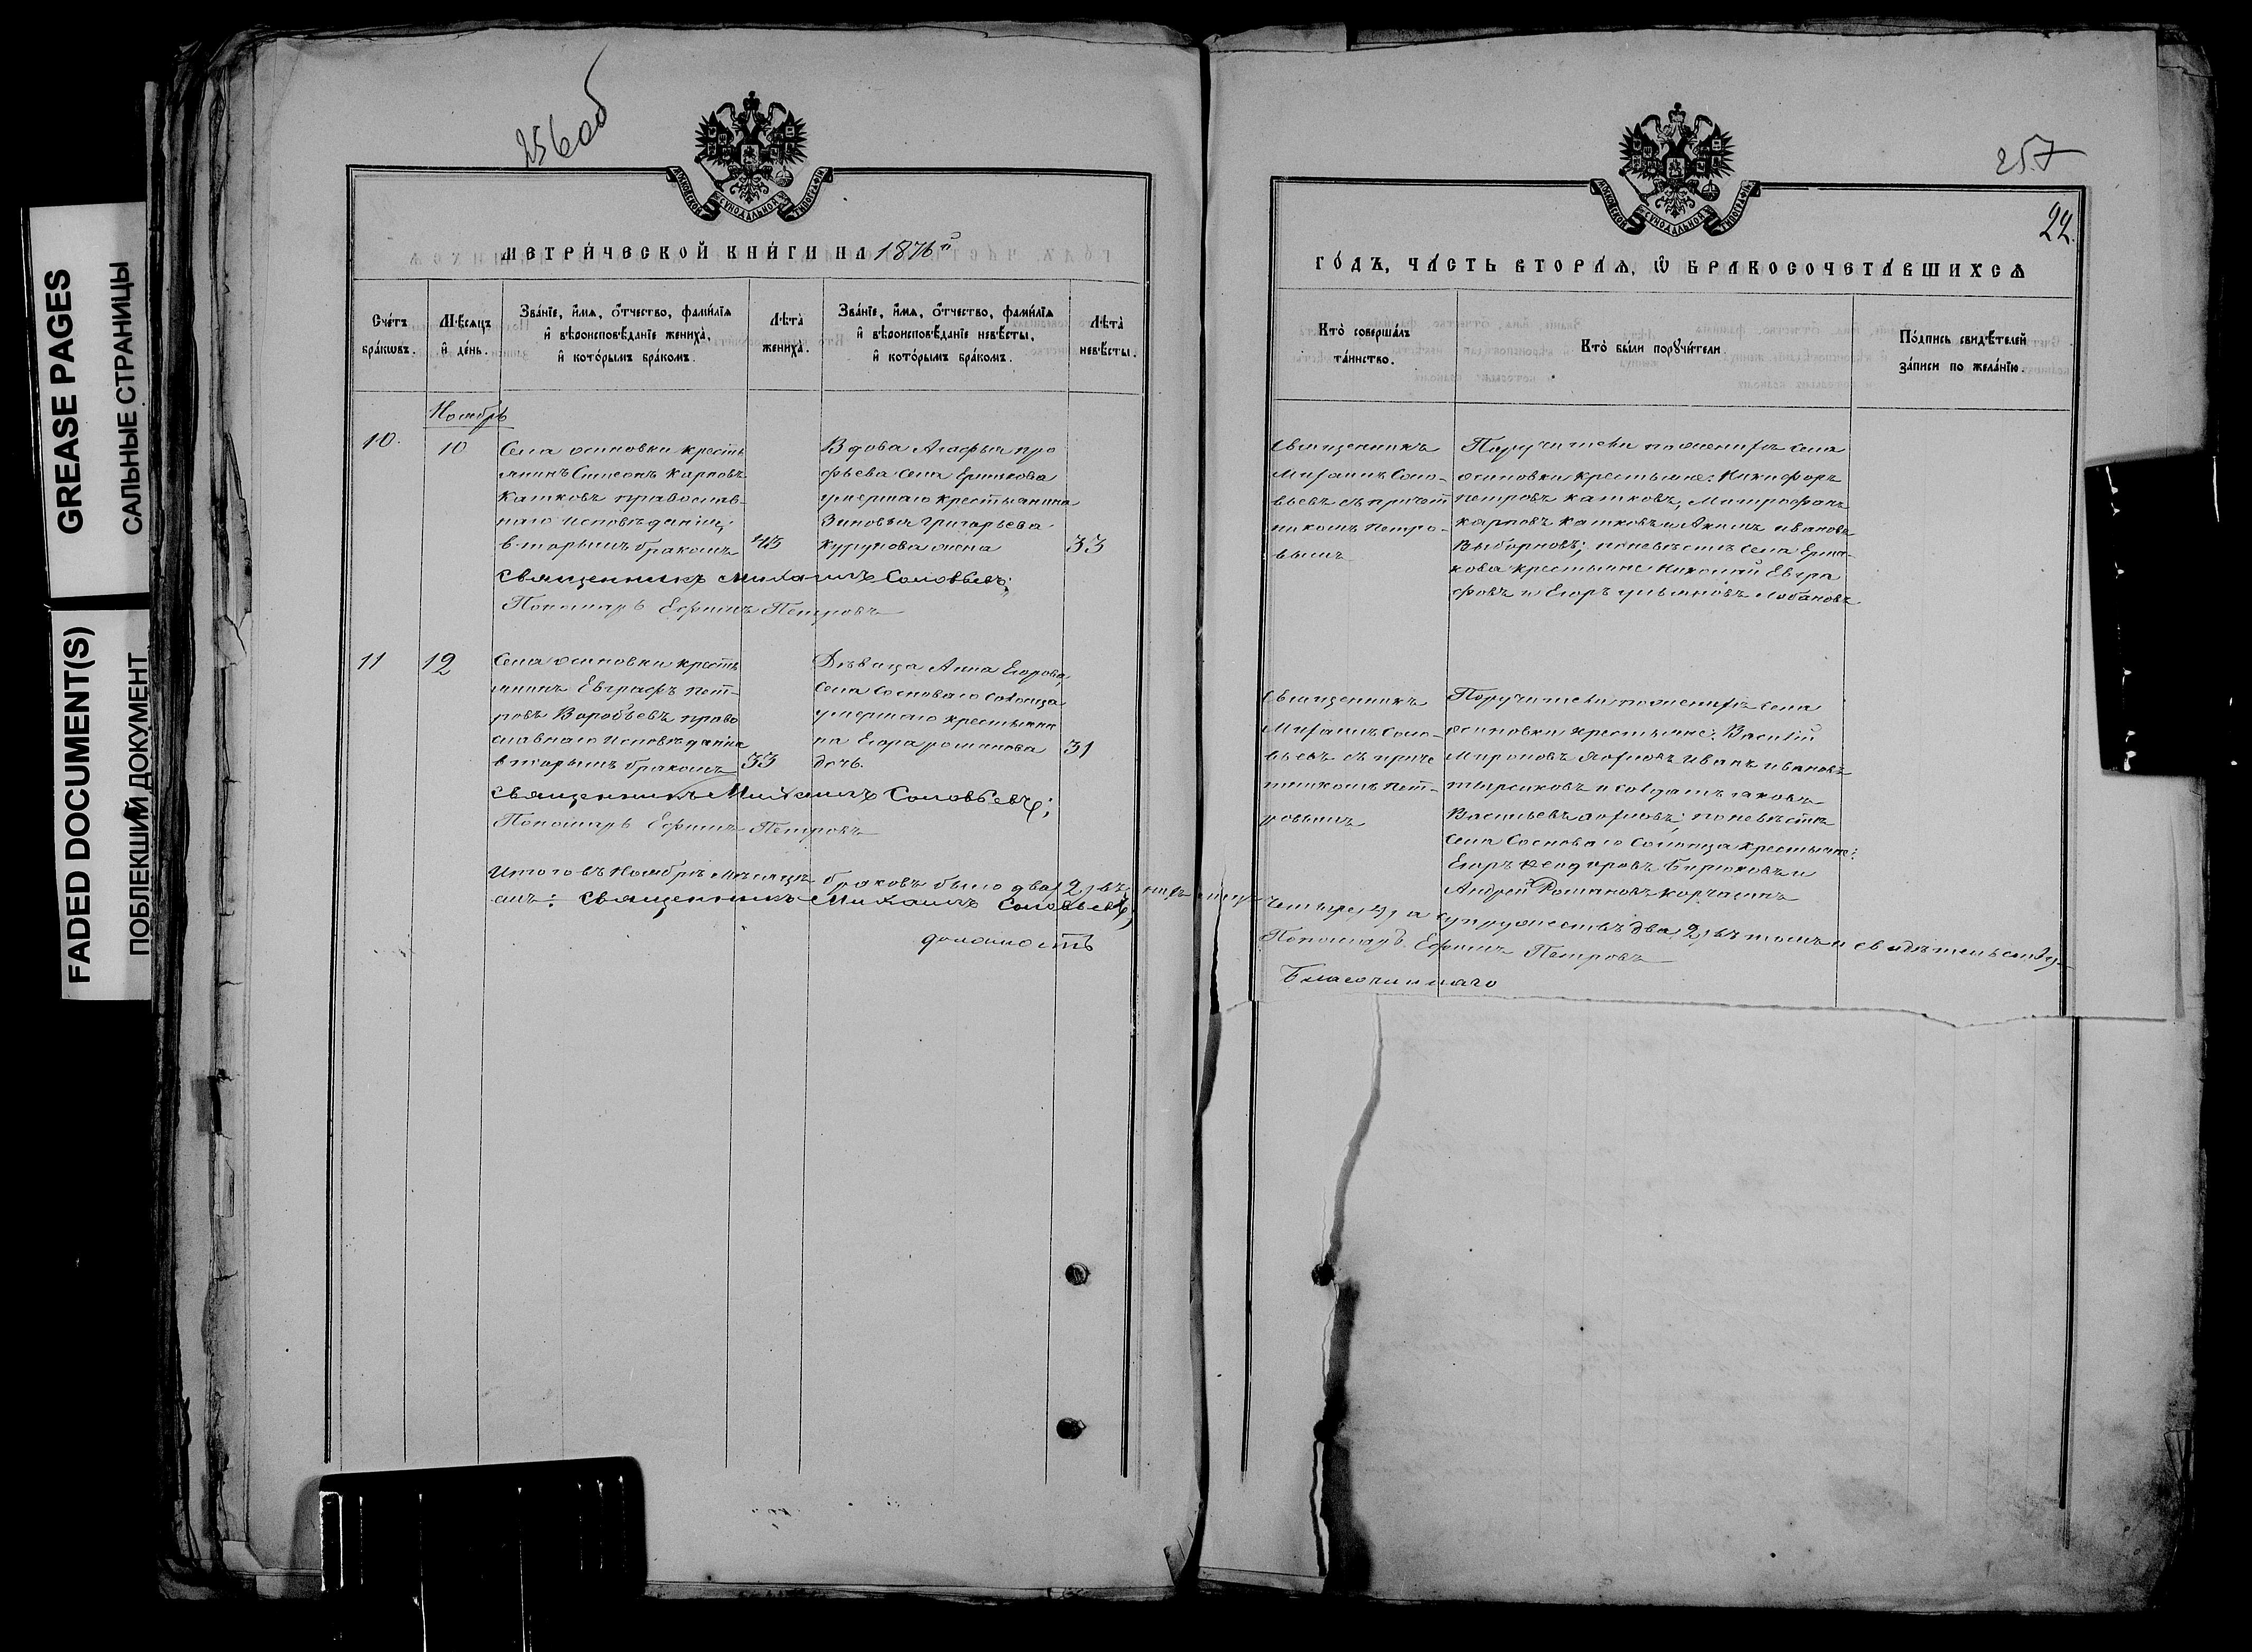 GREASE PAGES
САЛЬНЫЕ СТРАНИЦЫ
FADED DOCUMENT(S)
ПОБЛЕКШИЙ ДОКУМЕНТ
256об
МОСКОВСКОЙ СѴНОДАЛЬНОЙ ТИПОГРАФІИ
МЕТРИ́ЧЕСКОЙ КНИ́ГИ НА 1876й
Сче́тъ бра́кωвъ.
Мѣ́сяцъ и҆ де́нь.
Зва́нїе, и҆́мѧ, ѻ҆́тчество, фами́лїѧ
и҆ вѣроисповѣ́данїе жениха̀,
и҆ кото́рымъ бра́комъ.
Лѣ́та жениха̀.
Зва́нїе, и҆́мѧ, ѻ҆́тчество, фами́лїѧ
и҆ вѣроисповѣ́данїе невѣ́сты,
и҆ кото́рымъ бра́комъ.
Лѣ́та невѣ́сты.
Ноябрь
10.
10
Села осиновки кресть
янинъ Симеонъ Карповъ
Катковъ православ-
наго исповѣданія;
вторымъ бракомъ
43
Вдова Агафья про
фьева Села Ершкова
умершаго крестьянина
Зиновья Григорьева
жена
33
Священникъ Михаилъ Соловьевъ;
Пономарь Ефимъ Петровъ
11
12
Села осиновки кресть
янинъ Евграфъ пет-
ровъ Воробьевъ право
славнаго исповѣданія
вторымъ бракомъ
33
Дѣвица Анна Егорова,
села Сосноваго Солонца
умершаго крестьяни
на Егора романова
дочь.
31
Священникъ Михаилъ Соловьевъ;
Пономарь Ефимъ Петровъ
Итого въ Ноябрѣ мѣсяцѣ браковъ было два, 2, въ нихъ лицъ
Священникъ Михаилъ Соловьевъ,
должность
257
22.
МОСКОВСКОЙ СѴНОДАЛЬНОЙ ТИПОГРАФІИ
ГО́ДЪ, ЧА́СТЬ ВТОРА́Ѧ, Ѡ҆ БРАКОСОЧЕТА́ВШИХСѦ
Кто̀ соверша́лъ та́инство.
Кто̀ бы́ли порꙋчи́тели.
По́дпись свидѣ́телей за́писи по жела́нїю.
Священникъ
Михаилъ Соло-
вьевъ съ причет
никомъ Петро-
вымъ
Поручители по женихѣ села
осиновки крестьяне: Никифоръ
петровъ катковъ, Митрофанъ
карповъ катковъ и Акимъ ивановъ
Выборновъ; по невѣстѣ села Ерш-
кова крестьяне Николай Евгра
фовъ и Егоръ ульяновъ Лобановъ
Священникъ
Михаилъ Соло-
вьевъ съ приче
тникомъ Пет-
ровымъ
Поручители по женихѣ села
осиновки крестьяне: Василій
Мироновъ иванъ ивановъ
и солдатъ яковъ
Васильевъ; по невѣстѣ
села Сосноваго Солонца крестьяне:
Егоръ Ѳедоровъ Бирюковъ и
Андрей Романовъ Корчагинъ
четыре, 4, а супружествъ два, 2, въ томъ и свидѣтельствую
Пономарь Ефимъ Петровъ
Благочиннаго